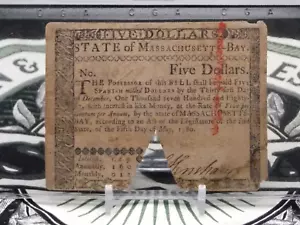 FIVE DOLLARS.
STATE of MASSACHUSETTS-BAY.
No. Five Dollars.
THE Possessor of this BILL shall be paid Five
SPANISH milled DOLLARS by the Thirty first Day
of December, One Thousand Seven Hundred and Eighty-
with Interest in like Money, at the Rate of Five per
Centum per Annum, by the State of MASSACHUSETTS-
BAY, according to an Act of the Legislature of the said
State, of the Fifth Day of May, 1780.
Interest.
Annually,
Monthly,